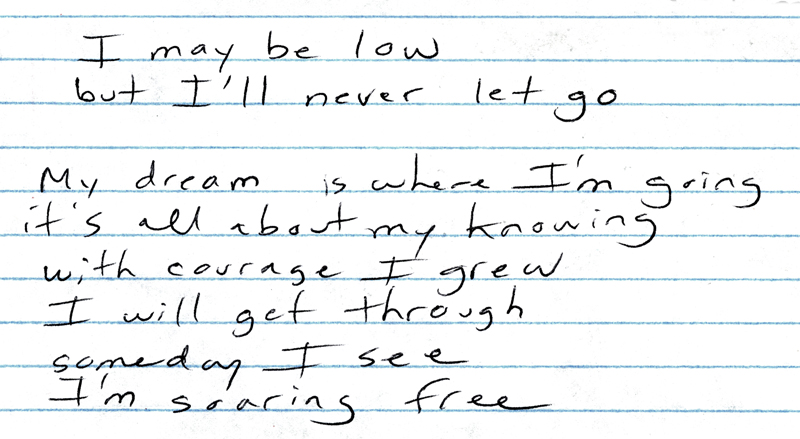 I may be low
but I'll never let go
My dream is where I'm going
it's all about my knowing
with courage I grew
I will get through
someday I see
I'm soaring free